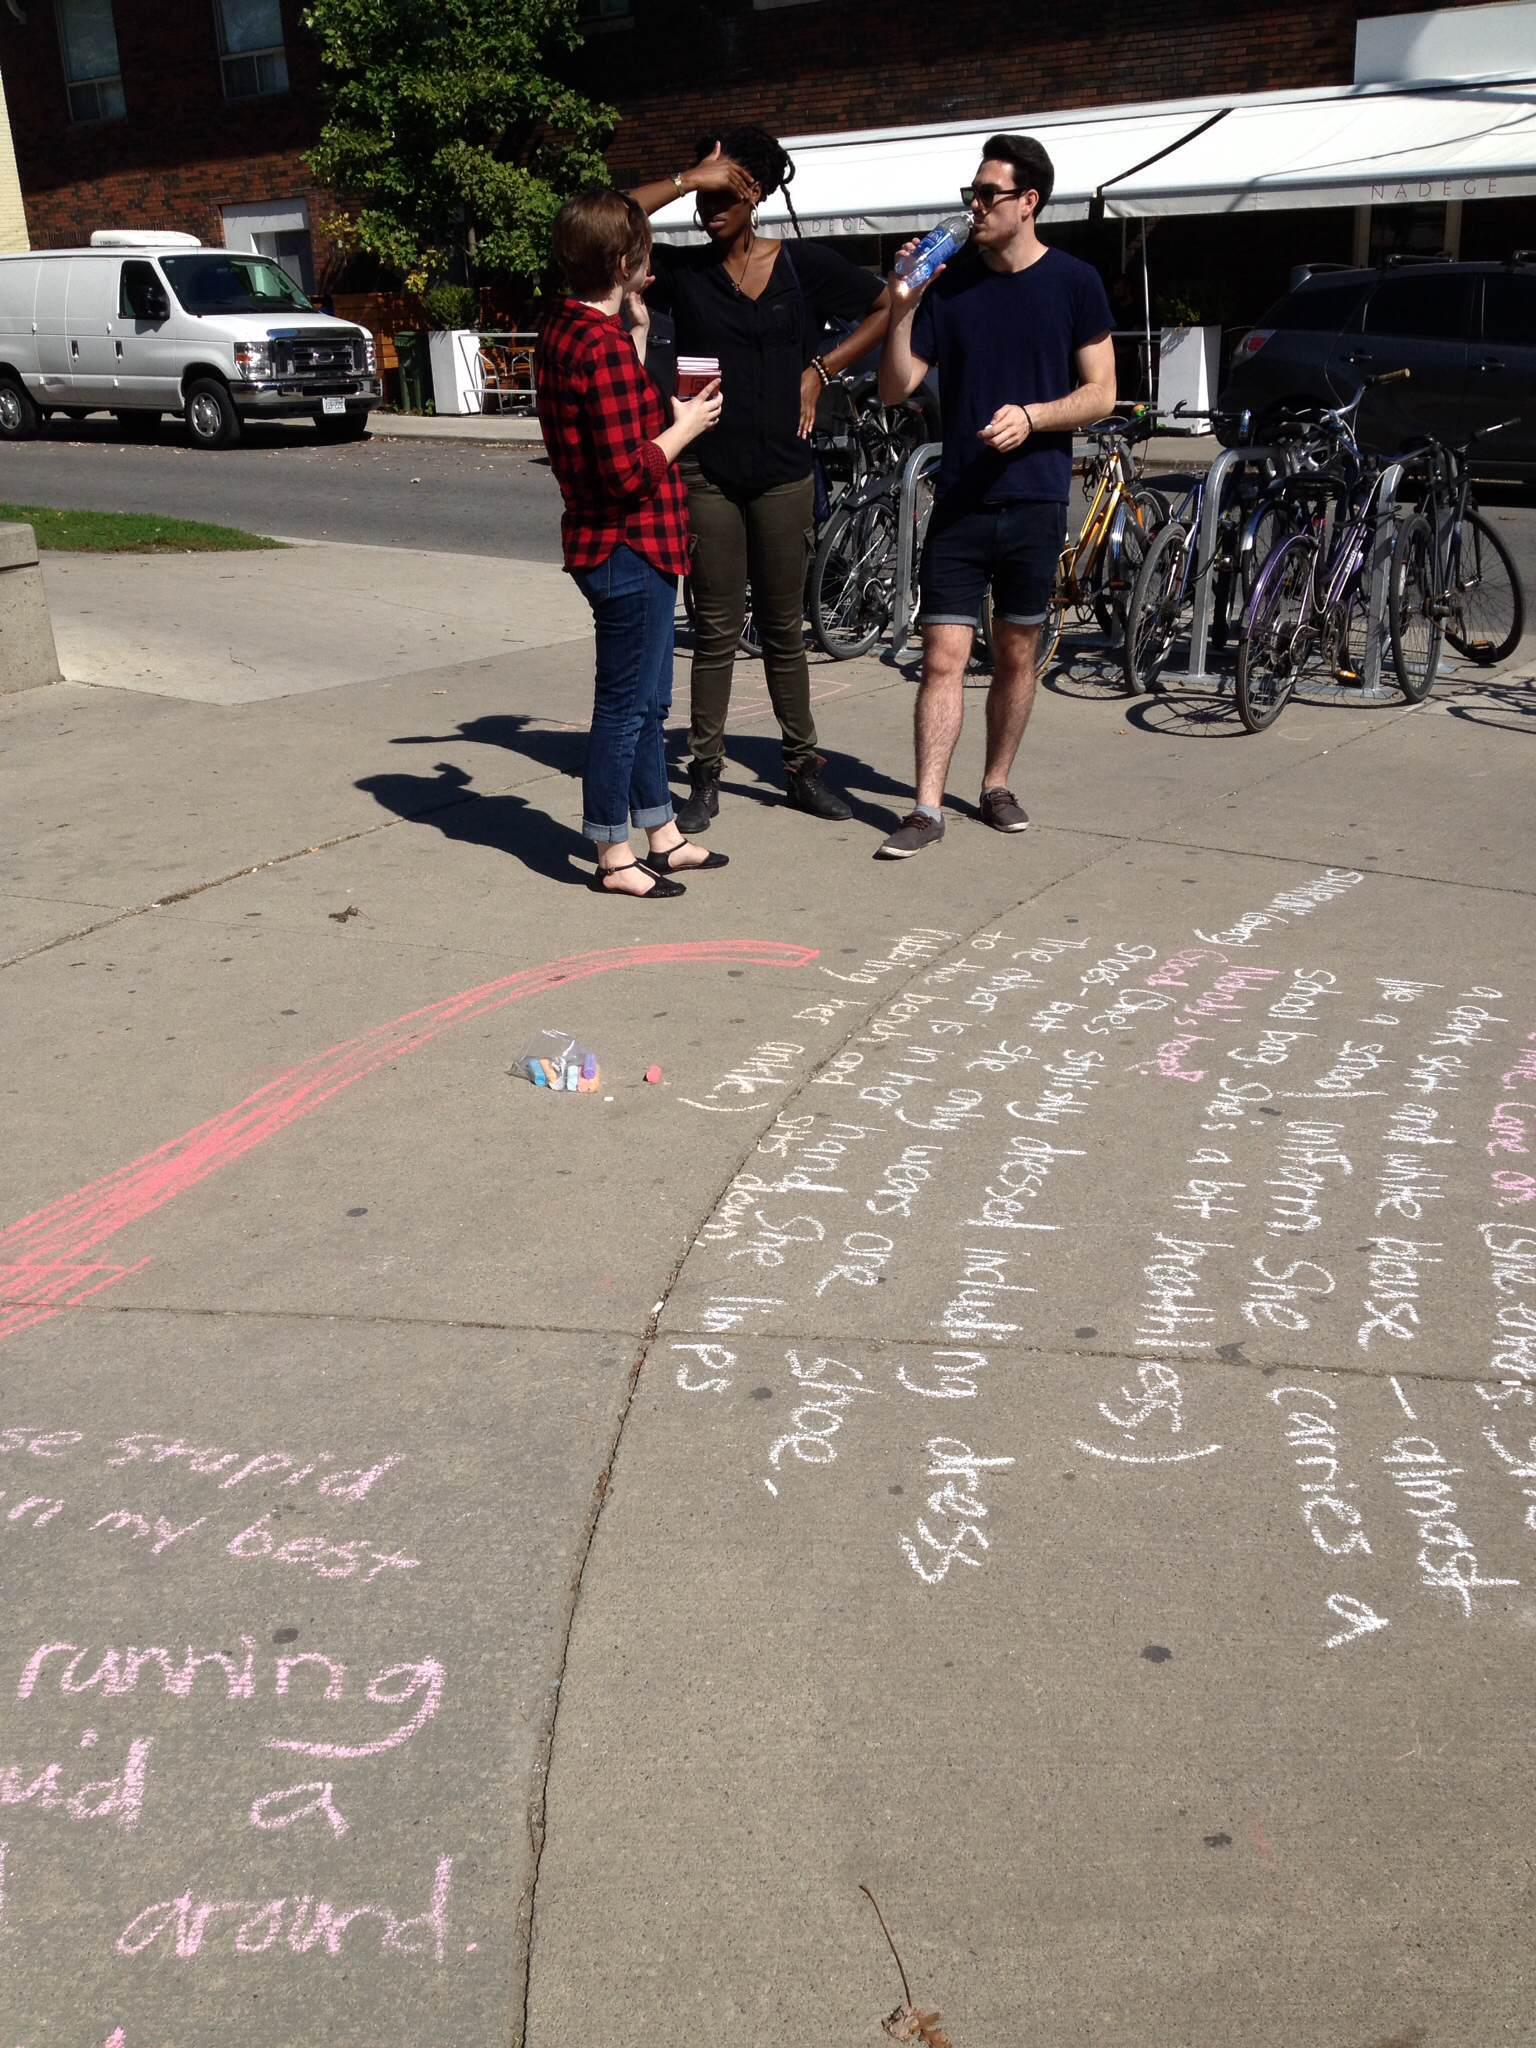 care on. (She enters.
a dark skirt and white blouse – almost
like a school uniform. She carries a
school bag. She's a bit breathless.)
Good Nobody's
(She's stylishly dressed including dress
shoes – but she only wears one shoe,
The other is in her hand She limps
to the bench and sits down,
rubbing her ankle.)
stupid
in my best
running
a
around.
NADÈGE
NADÈGE